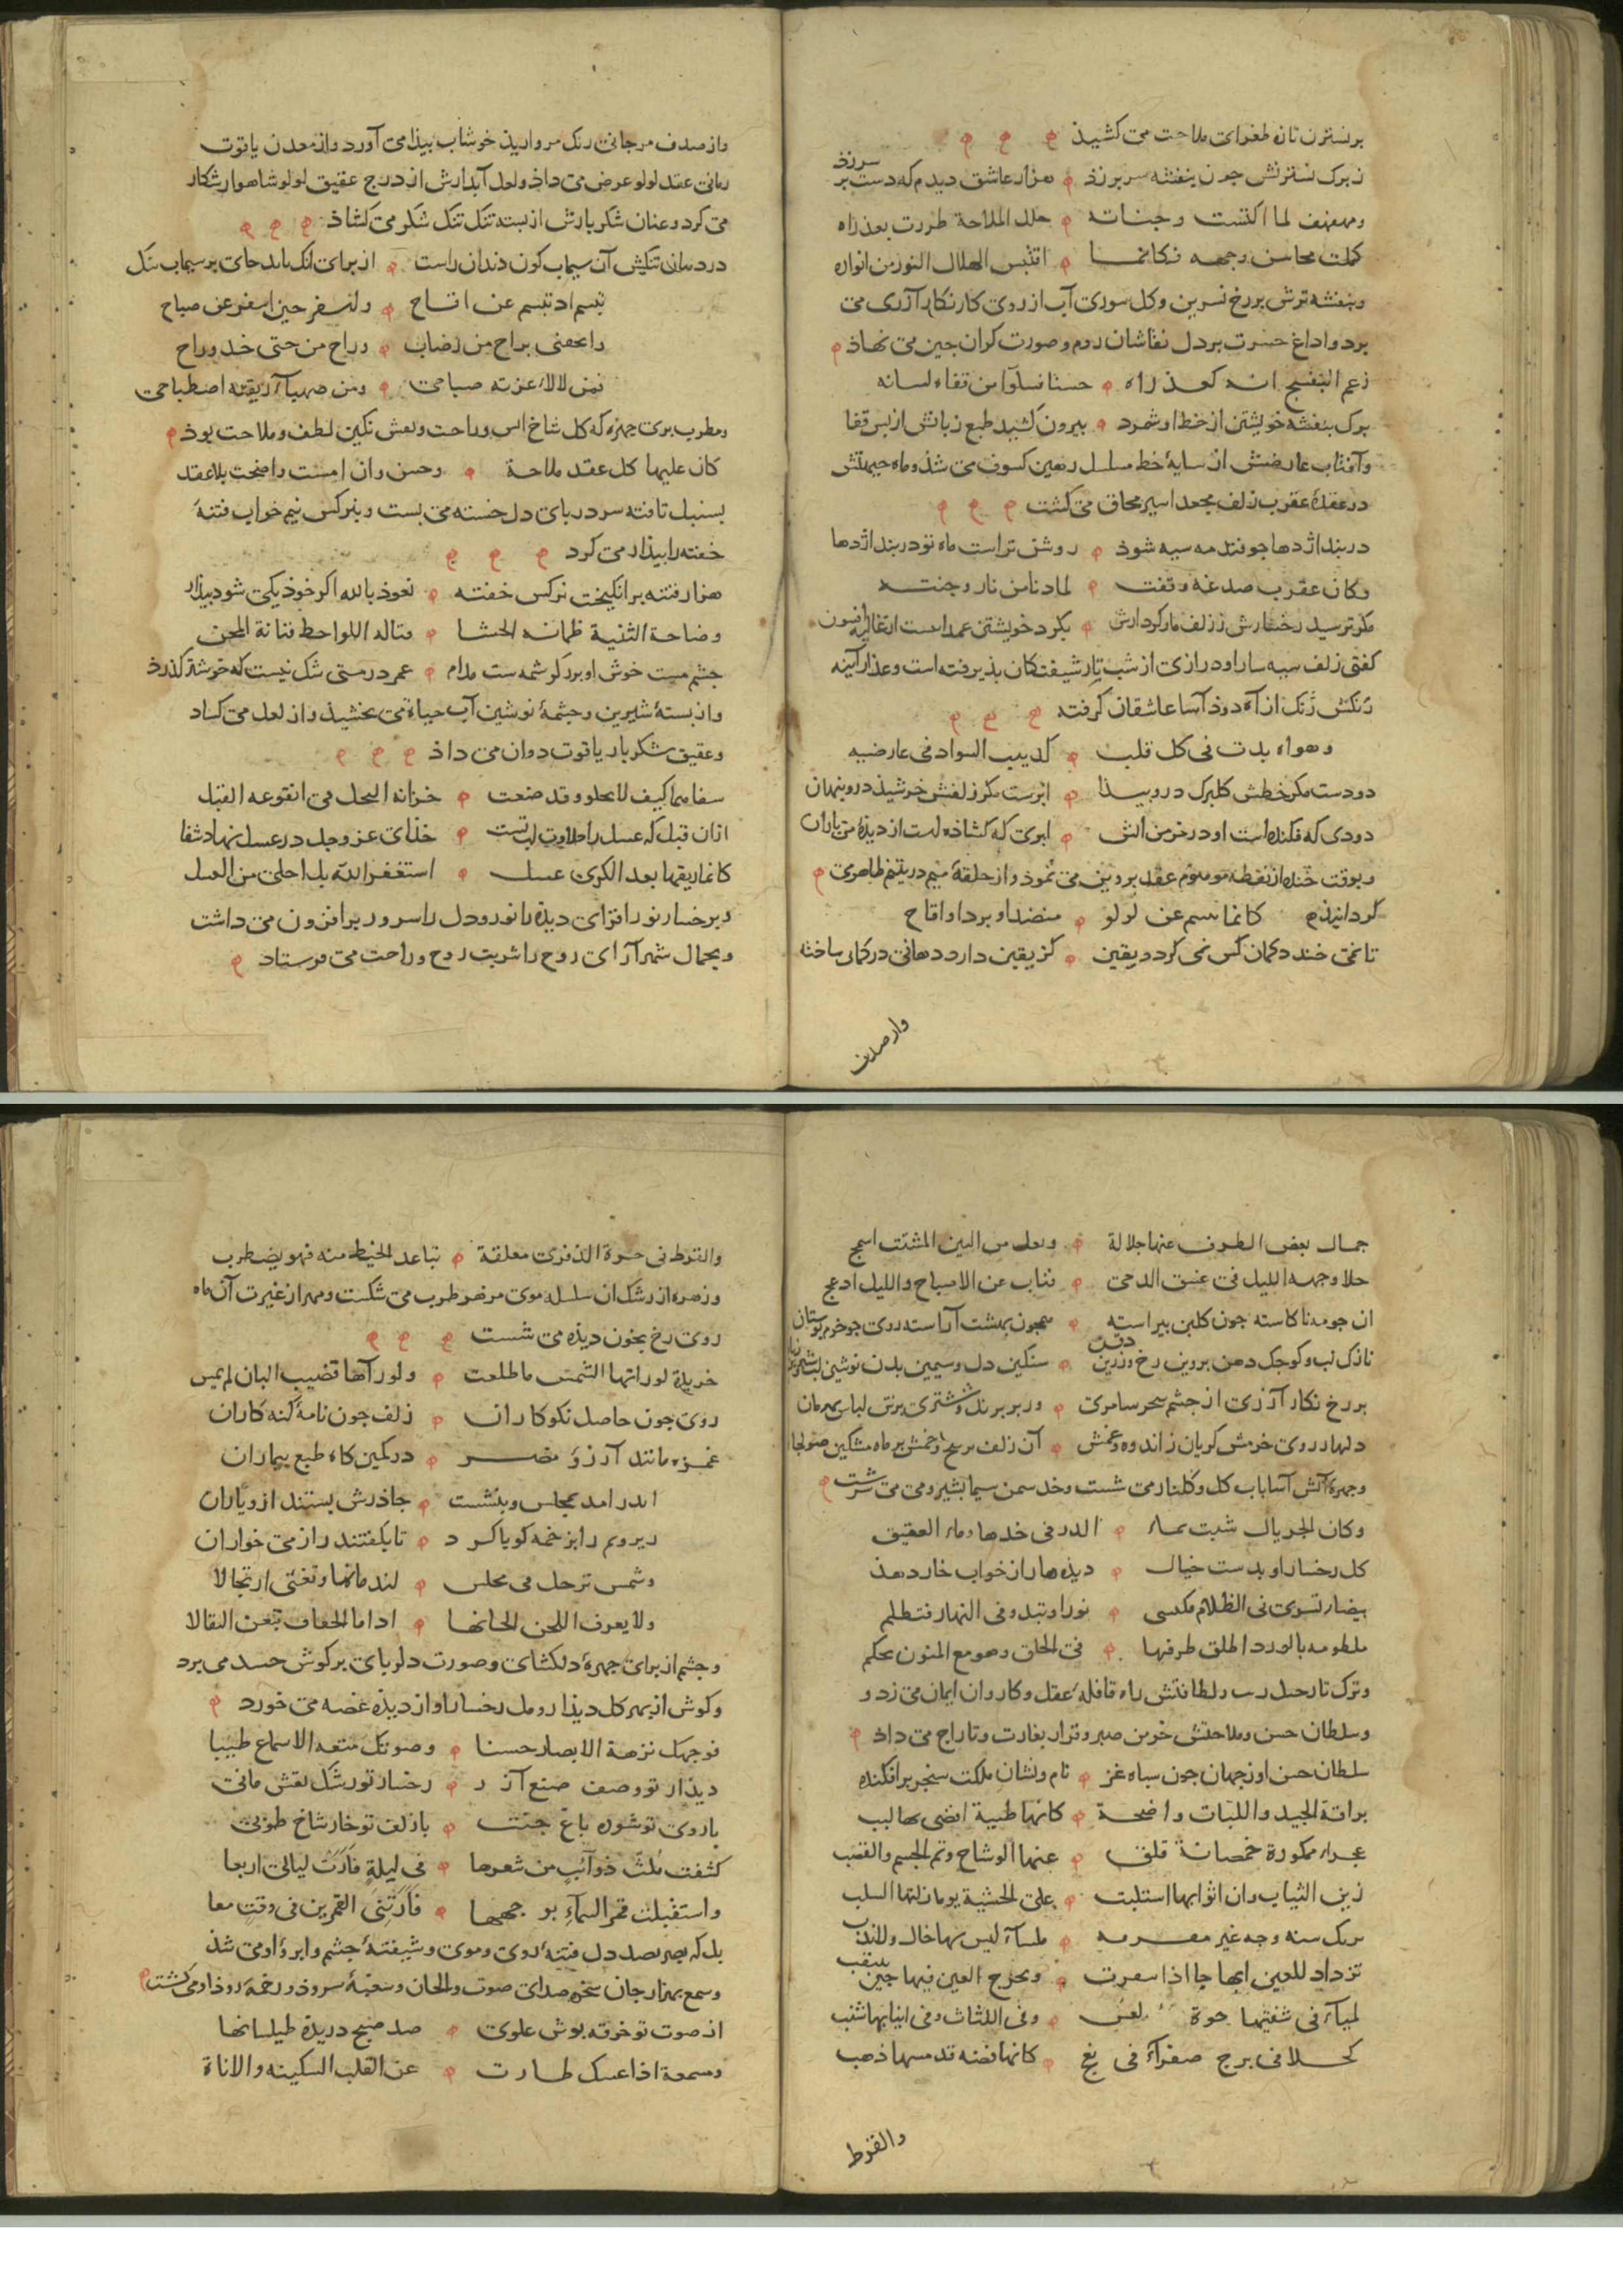 بر نسترن تازه طغرای ملاحت می کشیذ
ز برک نسترنش جون بنفشه سر بر زذ هزار عاشق دیدم که دست بر سر زذ
ومهفهف لما اکتست وجناته حلل الملاحة طرزت بعذاره
کملت محاسن وجهه فکانما اقتبس الهلال النور من انواره
وبنفشه ترش بر رخ نسرین وکل سوری آب از روی کار نکار آزری می
برد وداغ حسرت بر دل نقاشان روم وصورت کران جین می نهاذ
زعم البنفسج انه کعذاره حسنا فسلوا من قفاه لسانه
برک بنفشه خویشتن از خط او شمرد بیرون کشید طبع زبانش از بس قفا
وآفتاب عارضش از سایهٔ خط مسلسل رهین کسوف می شذ وماه جبهتش
در عقدهٔ عقرب زلف مجعد اسیر محاق می کشت
در بند اژدها جو فتد مه سیه شوذ روشن تر است ماه تو در بند اژدها
وکان عقرب صدغه وقفت لما دنا من نار وجنته
مکر ترسید رخسارش ز زلف مار کردارش بکرد خویشتن عمدا
کفتی زلف سیه سار او درازی از شب تار شیفتکان بذیرفته است وعذار آینه
رنکش زنک از آه دوذ آسا عاشقان کرفته
وهواه بدت فی کل قلب کدبیب السواد فی عارضیه
دودست مکر خطش کلبرک درو بیذا ابرست مکر زلفش خرشیذ درو بنهان
دودی که فکنده است او در خرمن آتش ابری که کشاذه است از دیذهٔ من باران
وبوقت خنده از نقطهٔ موهوم عقد بروین می نموذ واز حلقهٔ میم در یتیم ظاهر می
کردانیذ کانما یبسم عن لولو منضد او برد او اقاح
تا نمی خندد کمان کس نمی کردد یقین کز یقین دارد دهانی در کمان ساخته
واز صدف
واز صدف مرجانی رنک مروارید خوشاب بیذا می آورد واز معدن یاقوت
رمانی عقد لولو عرض می داذ ولعل آبدارش از درج عقیق لولو شاهوار شکار
می کرد وعنان شکر بارش از بسته تنک تنک شکر می کشاذ
در دهان تنکش آن سیماب کون دندان راست از برای انک باید جای بر سیماب تنک
تبسم اذ تبسم عن اقاح واسفر حین اسفر عن صباح
واتحفنی براح من رضاب وراح من جنی خد وراح
فمن لالاء غرته صباحی ومن صهباء ریقته اصطباحی
ومطرب بری جهره که کل شاخ انس وراحت ونقش نکین لطف وملاحت بوذ
کان علیها کل عقد ملاحة وحسن وان امست واضحت بلا عقد
بسنبل تافته سر در بای دل خسته می بست وبنرکس نیم خواب فتنهٔ
خفته را بیذار می کرد
هزار فتنه برانکیخت نرکس خفته نعوذ بالله اکر خوذ یکی شود بیذار
وضاحة الثنیة ظمانة الحشا فتالة اللواحظ فتانة المجن
جشم مست خوش او برد کرشمه ست مدام عمر در مستی شک نیست که خوشتر کذرذ
واز بستهٔ شیرین وجشمهٔ نوشین آب حیاة می بخشیذ واز لعل می کساد
وعقیق شکر بار یاقوت روان می داذ
سفاهما کیف لا یحلو وقد صنعت خزانة النحل فی انقوعه القبل
ازان قبل که عسل را حلاوت لب تست خذای عز وجل در عسل نهاد شفا
کانما ریقها بعد الکری عسل استغفر الله بل احلی من العسل
وبرخسار نور افزای دیذه را نور ودل را سرور برافزون می داشت
وبجمال شهر آرای روح را شربت روح وراحت می فرستاد
جمال یغض الطرف عنها جلالة
جلا وجهه اللیل فی غسق الدجی فناب عن الاصباح واللیل ادعج
ان جو مه ناکاسته جون کلبن بیراسته همجون بهشت آراسته روی جو خرم بوستان
نازک لب وکوجک دهن بروین رخ وزرین ذقن سنکین دل وسیمین بدن نوشین لب
بر رخ نکار آزری از جشم سحر سامری ودر بر برنک ششتری بر تن لباس بهرمان
دلها ز روی خرمش کریان ز اندوه وغمش آن زلف بر خمش بر ماه مشکین صولجان
وجهرهٔ آتش آسا باب کل وکلنار می شست وخد سمن سیما بشیر ومی می سرشت
وکان الجریال شیبت بماء الدر فی خدها وماء العقیق
کل رخسار او بدست خیال دیذه ها را ز خواب خار دهذ
بیضاء تسری فی الظلام مکسی نورا وتبدو فی النهار فتظلم
ملطومه بالورد اطلق طرفها فی الخلق وهو مع المنون محکم
وترک تاز حسن ولطافتش راه قافلهٔ عقل وکاروان ایمان می زد و
وسلطان حسن وملاحتش خرمن صبر وقرار بغارت وتاراج می داذ
سلطان حسن او ز جهان جون سباه غز نام ونشان ملکت سنجر برافکنده
براقة الجید واللبات واضحة کانها ظبیة افضی بها لبب
عجزاء ممکورة خمصانة قلق عنها الوشاح وتم الجسم والقصب
زین الثیاب وان اثوابها استلبت علی الحشیة یوما زانها السلب
تریک سنة وجه غیر مقرفة ملساء لیس بها خال ولا ندب
تزداد للعین ابهاجا اذا سفرت وتحرج العین فیها حین تنتقب
لمیاء فی شفتیها حوة لعس وفی اللثات وفی انیابها شنب
کحلاء فی برج صفراء فی نعج کانها فضة قد مسها ذهب
والقرط
والقرط فی حرة الذفری معلقة تباعد الحیط منه فهو یضطرب
وزهره از رشک ان سلسله موی مزهر طرب می شکست ومهر از غیرت آن ماه
روی رخ بخون دیذه می شست
خریدة لو راتها الشمس ما طلعت ولو رآها قضیب البان لم یمس
روی جون حاصل نکوکاران زلف جون نامهٔ کنه کاران
غمزه مانند آرزو مضر در کمین کاه طبع بیماران
اندر امد بمجلس وبنشست جاذرش بستند ازو یاران
زیر وبم را بزخمه کویا کرد تا بکفتند راز می خواران
وشمس ترحل فی مجلس لندمانها وتغنی ارتجالا
ولا یعرف اللحن الحانها
وجشم از برای جهرهٔ دلکشای وصورت دلربای بر کوش حسد می برد
وکوش از بهر کل دیذار ومل رخسار او از دیذه غصه می خورد
فوجهک نزهة الابصار حسنا وصوتک متعة الاسماع طیبا
دیذار تو وصف صنع آزر رخسار تو رشک نقش مانی
با روی تو شوره باغ جنت با زلف تو خار شاخ طوبی
کشفت ثلث ذوآئب من شعرها فی لیلة فارت لیالی اربعا
واستقبلت قمر السمآء بوجهها فارتنی القمرین فی وقت معا
بلکه بصر بصد دل فتنهٔ روی وموی وشیفتهٔ جشم وابروٴ او می شذ
وسمع بهزار جان سخرهٔ صدای صوت والحان وسغبهٔ سروذ وزخمهٔ روذ او می کشت
از صوت تو خرقه بوش علوی صد صبح دریذه طیلسانها
ومسمعة اذا غنتک طارت عن القلب السکینه والاناة